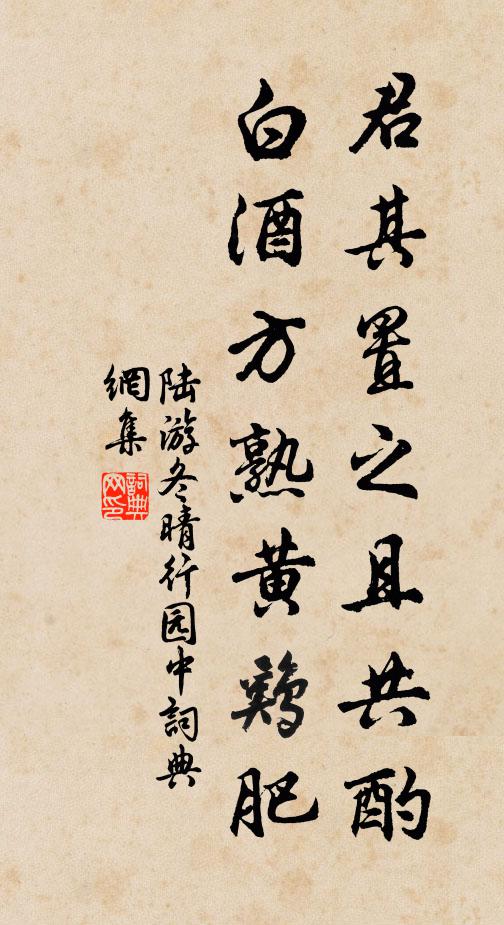 君其置之且共酌
白酒方熟黄鷄肥
陆游冬晴行园中詞典
網集
詞典
网印